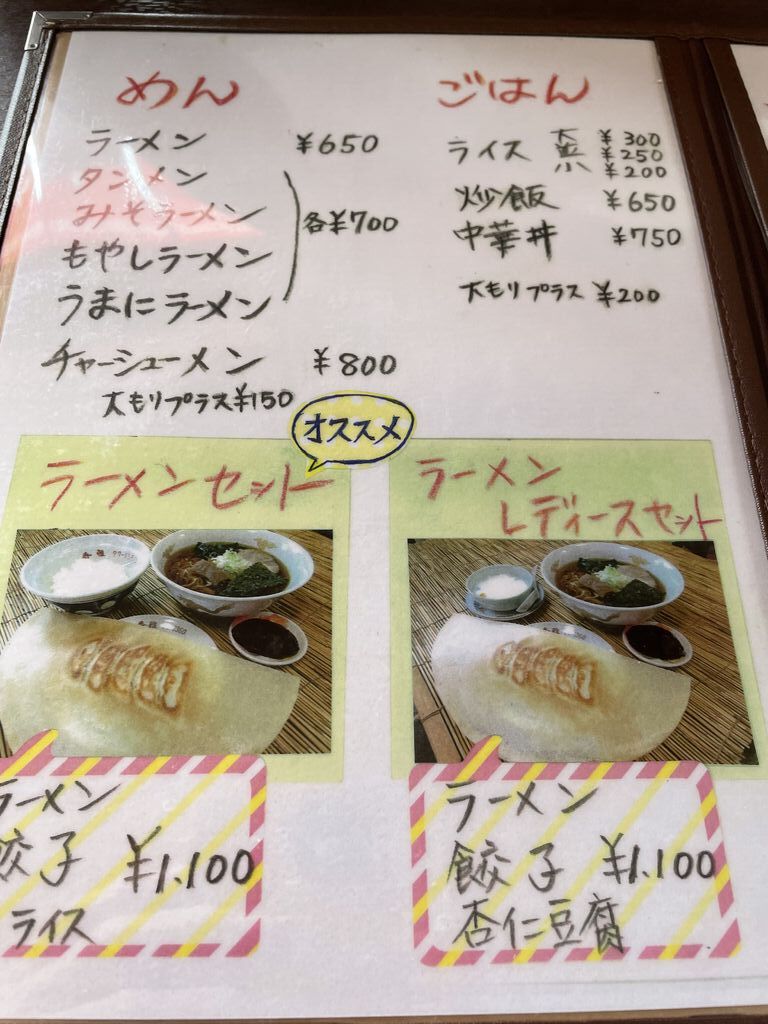 めん
ラーメン ¥650
タンメン
みそラーメン
各¥700
もやしラーメン
うまにラーメン
チャーシューメン ¥800
大もりプラス¥150
ごはん
ライス 大 ¥300
¥250
小 ¥200
炒飯 ¥650
中華丼 ¥750
大もりプラス ¥200
オススメ
ラーメンセット
ラーメン
餃子 ¥1,100
ライス
ラーメン
レディースセット
ラーメン
餃子 ¥1,100
杏仁豆腐